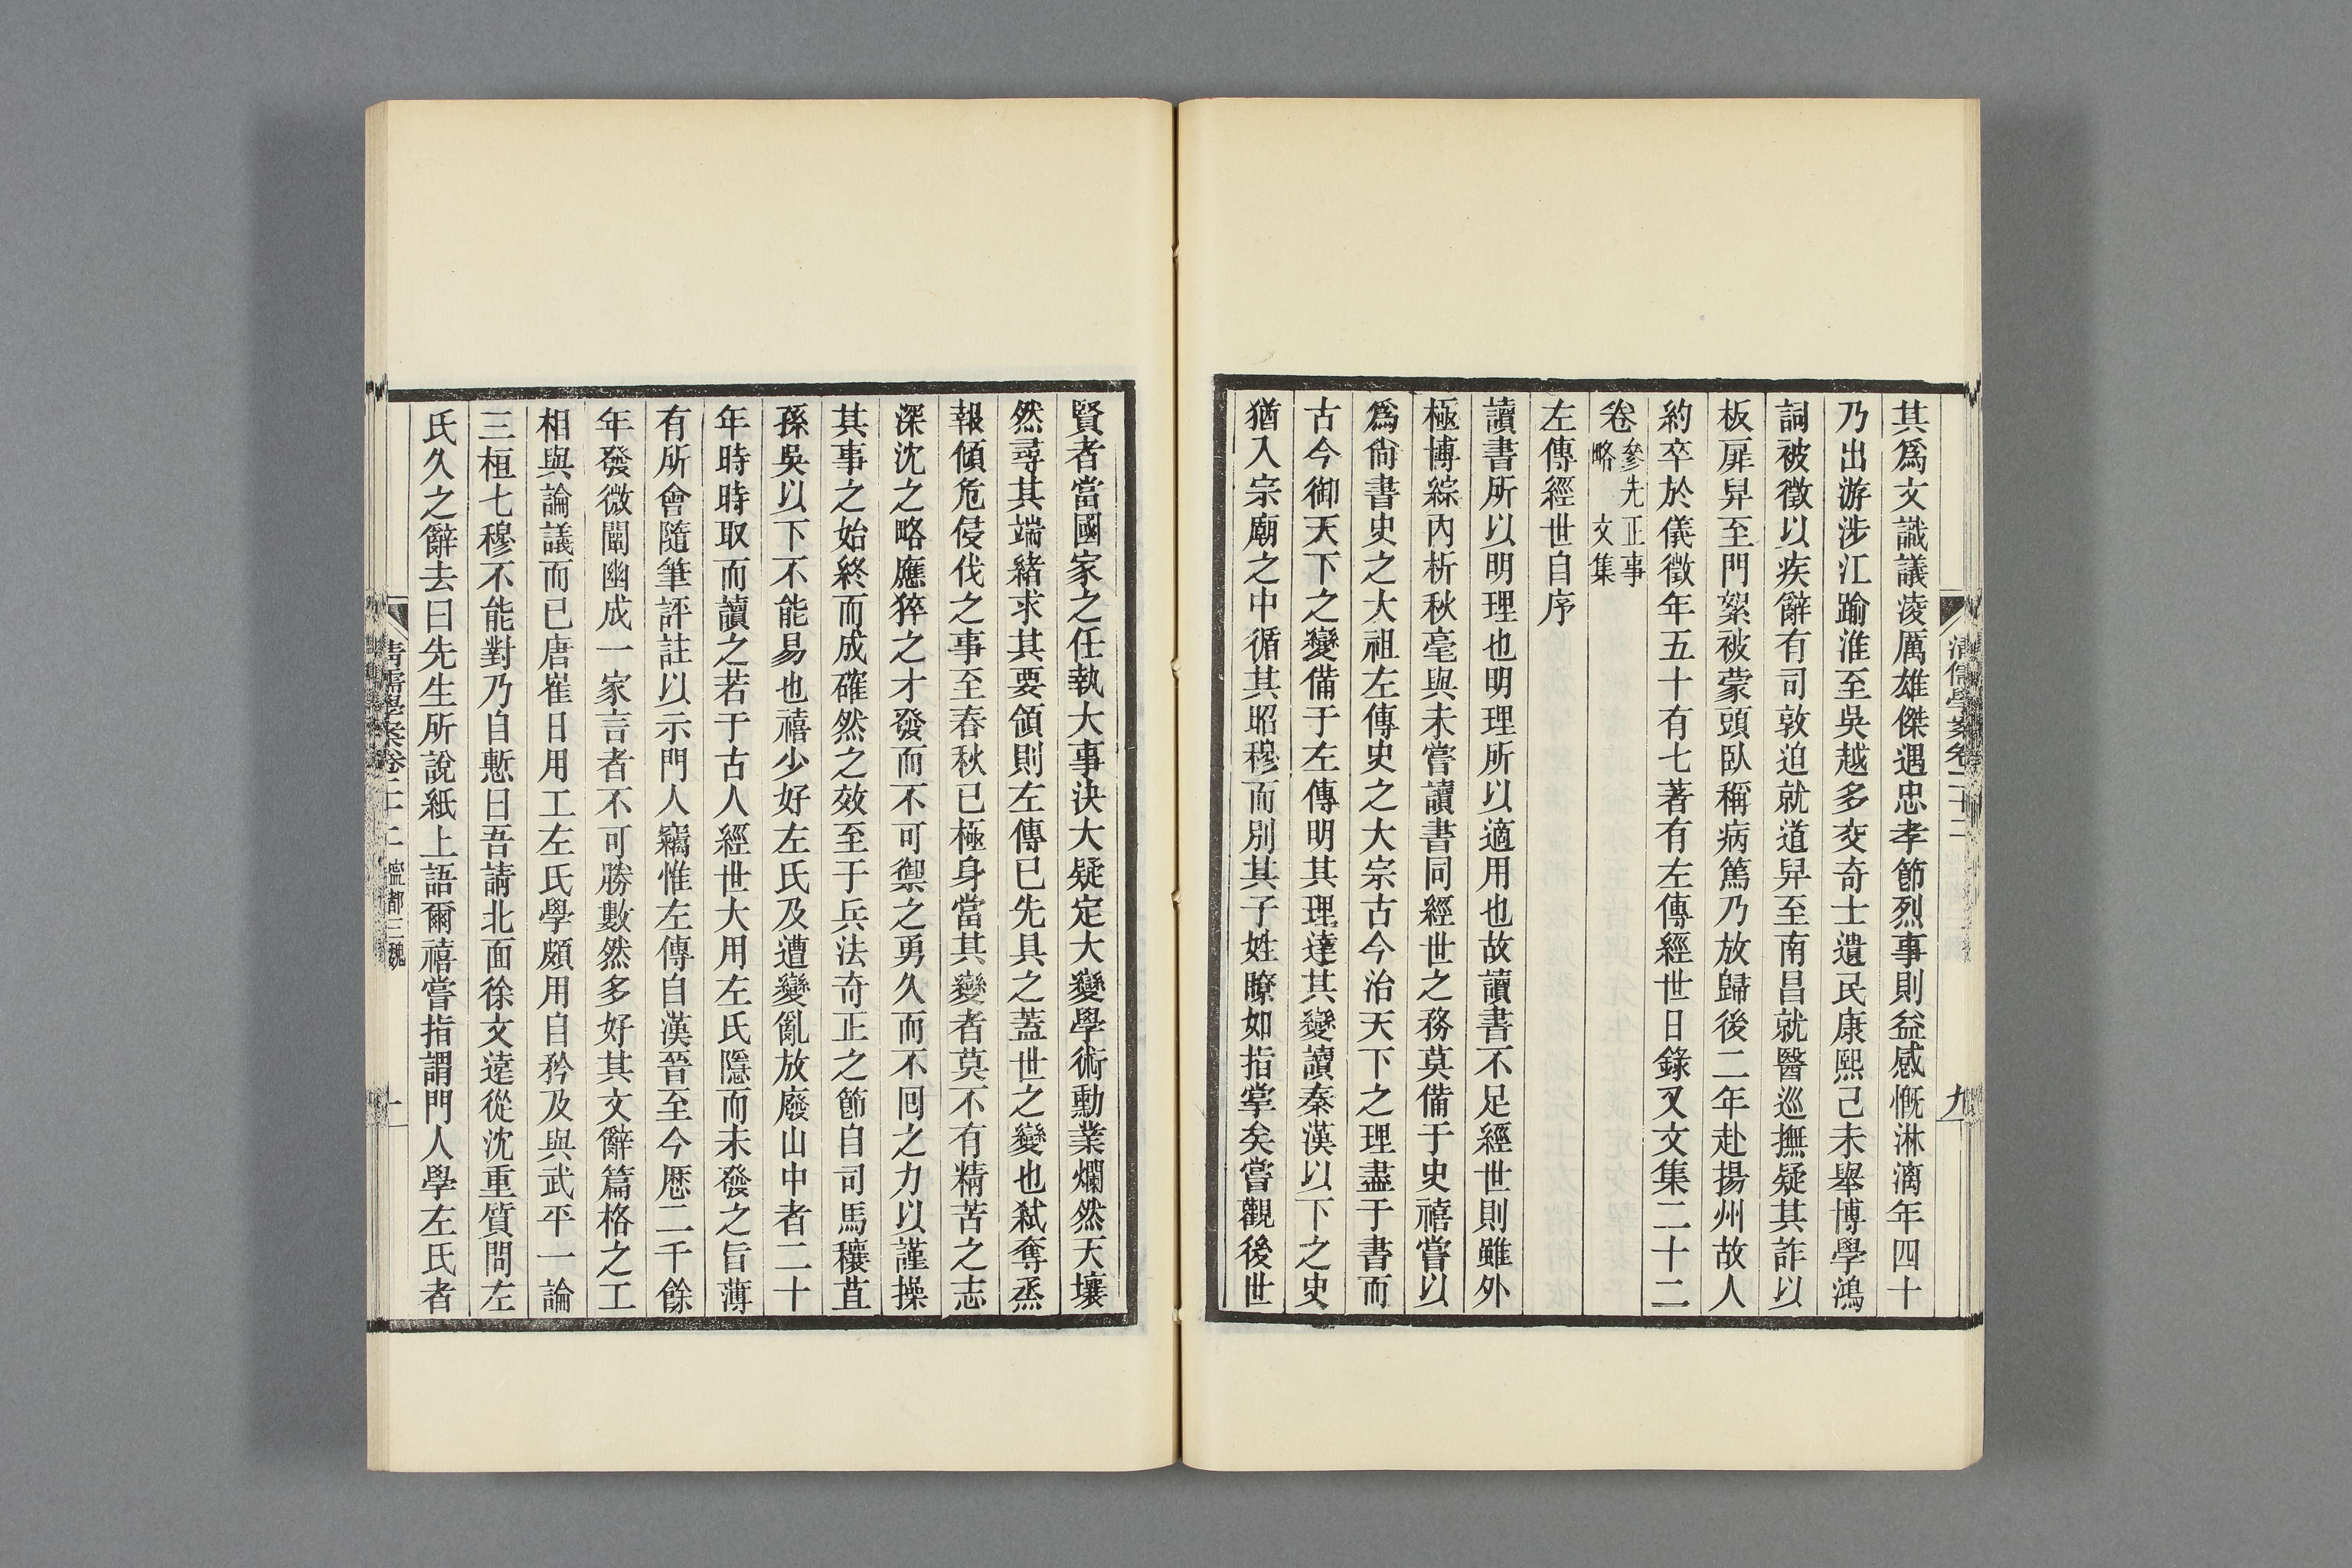 其爲文識議凌厲雄傑遇忠孝節烈事則益感慨淋漓年四十
乃出游涉江踰淮至吳越多交奇士遺民康熙己未舉博學鴻
詞被徵以疾辭有司敦迫就道舁至南昌就醫巡撫疑其詐以
板扉舁至門絮被蒙頭臥稱病篤乃放歸後二年赴揚州故人
約卒於儀徵年五十有七著有左傳經世日錄又文集二十二
卷參先正事略 文集
左傳經世自序
讀書所以明理也明理所以適用也故讀書不足經世則雖外
極博綜內析秋毫與未嘗讀書同經世之務莫備于史禧嘗以
爲尙書史之大祖左傳史之大宗古今治天下之理盡于書而
古今御天下之變備于左傳明其理達其變讀秦漢以下之史
猶入宗廟之中循其昭穆而別其子姓瞭如指掌矣嘗觀後世
清儒學案卷二十二
九
賢者當國家之任執大事決大疑定大變學術勳業爛然天壤
然尋其端緒求其要領則左傳已先具之蓋世之變也弒奪烝
報傾危侵伐之事至春秋已極身當其變者莫不有精苦之志
深沈之略應猝之才發而不可禦之勇久而不囘之力以謹操
其事之始終而成確然之效至于兵法奇正之節自司馬穰苴
孫吳以下不能易也禧少好左氏及遭變亂放廢山中者二十
年時時取而讀之若于古人經世大用左氏隱而未發之旨薄
有所會隨筆評註以示門人竊惟左傳自漢晉至今歷二千餘
年發微闡幽成一家言者不可勝數然多好其文辭篇格之工
相與論議而已唐崔日用工左氏學頗用自矜及與武平一論
三桓七穆不能對乃自慙曰吾請北面徐文遠從沈重質問左
氏久之辭去曰先生所說紙上語爾禧嘗指謂門人學左氏者
清儒學案卷二十二 都三魏